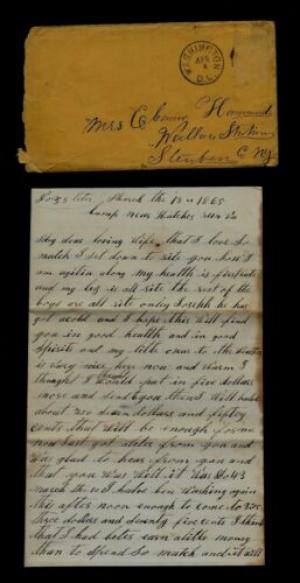 WASHINGTON
APR
D.C.
Mrs C
Wallace Station
Steuben C NY
March the 18 1865
Camp near Hatches run Va
My dear loving Wife that I love so
match I set down to rite you how I
am agitin along my health is firstrate
and my leg is all rite the rest of the
boys are all rite onley Joseph he has
got acold and I hope this will find
you in good health and in good
Spirits and my litle ones to the weather
is very nice here now and warm I
thought I would put in five dollars
more and send to you then I will have
about two dollars and fifty
cents that will be enough for me
now I just got aleter from you and
was glad to hear from you and
that you was well it was
march the I have ben Washing again
this after noon enough to come to
three dollars and seventy five cents I think
that I had beter earn alitle money
than to spend so match and it will